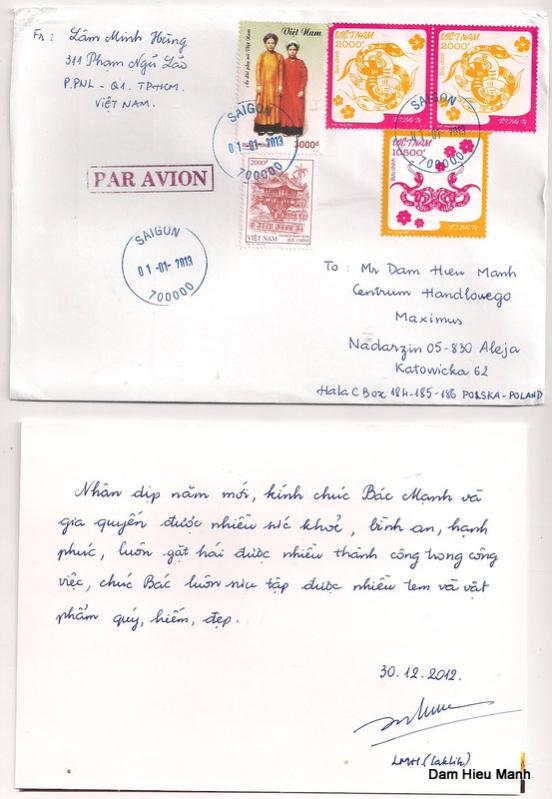 Fr: Lâm Minh Hùng
311 Phạm Ngũ Lão
P.PNL - Q1. TPHCM.
VIỆT NAM.
Việt Nam
3000đ
VIỆT NAM
2000đ
VIỆT NAM
2000đ
SAIGON
01-01-2013
700000
SAIGON
01-01-2013
700000
PAR AVION
2000đ
VIỆT NAM
BƯU CHÍNH
VIỆT NAM
10500đ
SAIGON
01-01-2013
700000
To: Mr Dam Hieu Manh
Centrum Handlowego
Maximus
Nadarzin 05-830 Aleja
Katowicka 62
Hala C Box 184-185-186 POLSKA-POLAND
Nhân dịp năm mới, kính chúc Bác Mạnh và
gia quyến được nhiều sức khoẻ, bình an, hạnh
phúc, luôn gặt hái được nhiều thành công trong công
việc, chúc Bác luôn sưu tập được nhiều tem và vật
phẩm quý, hiếm, đẹp.
30.12.2012.
LMH (laklih)
Dam Hieu Manh